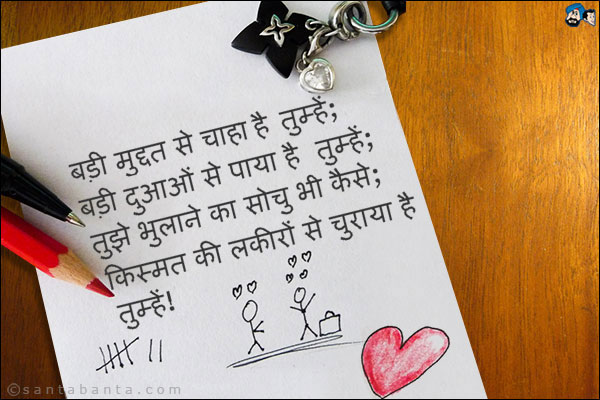 बड़ी मुद्दत से चाहा है तुम्हें;
बड़ी दुआओं से पाया है तुम्हें;
तुझे भुलाने का सोचु भी कैसे;
किस्मत की लकीरों से चुराया है
तुम्हें!
©santabanta.com